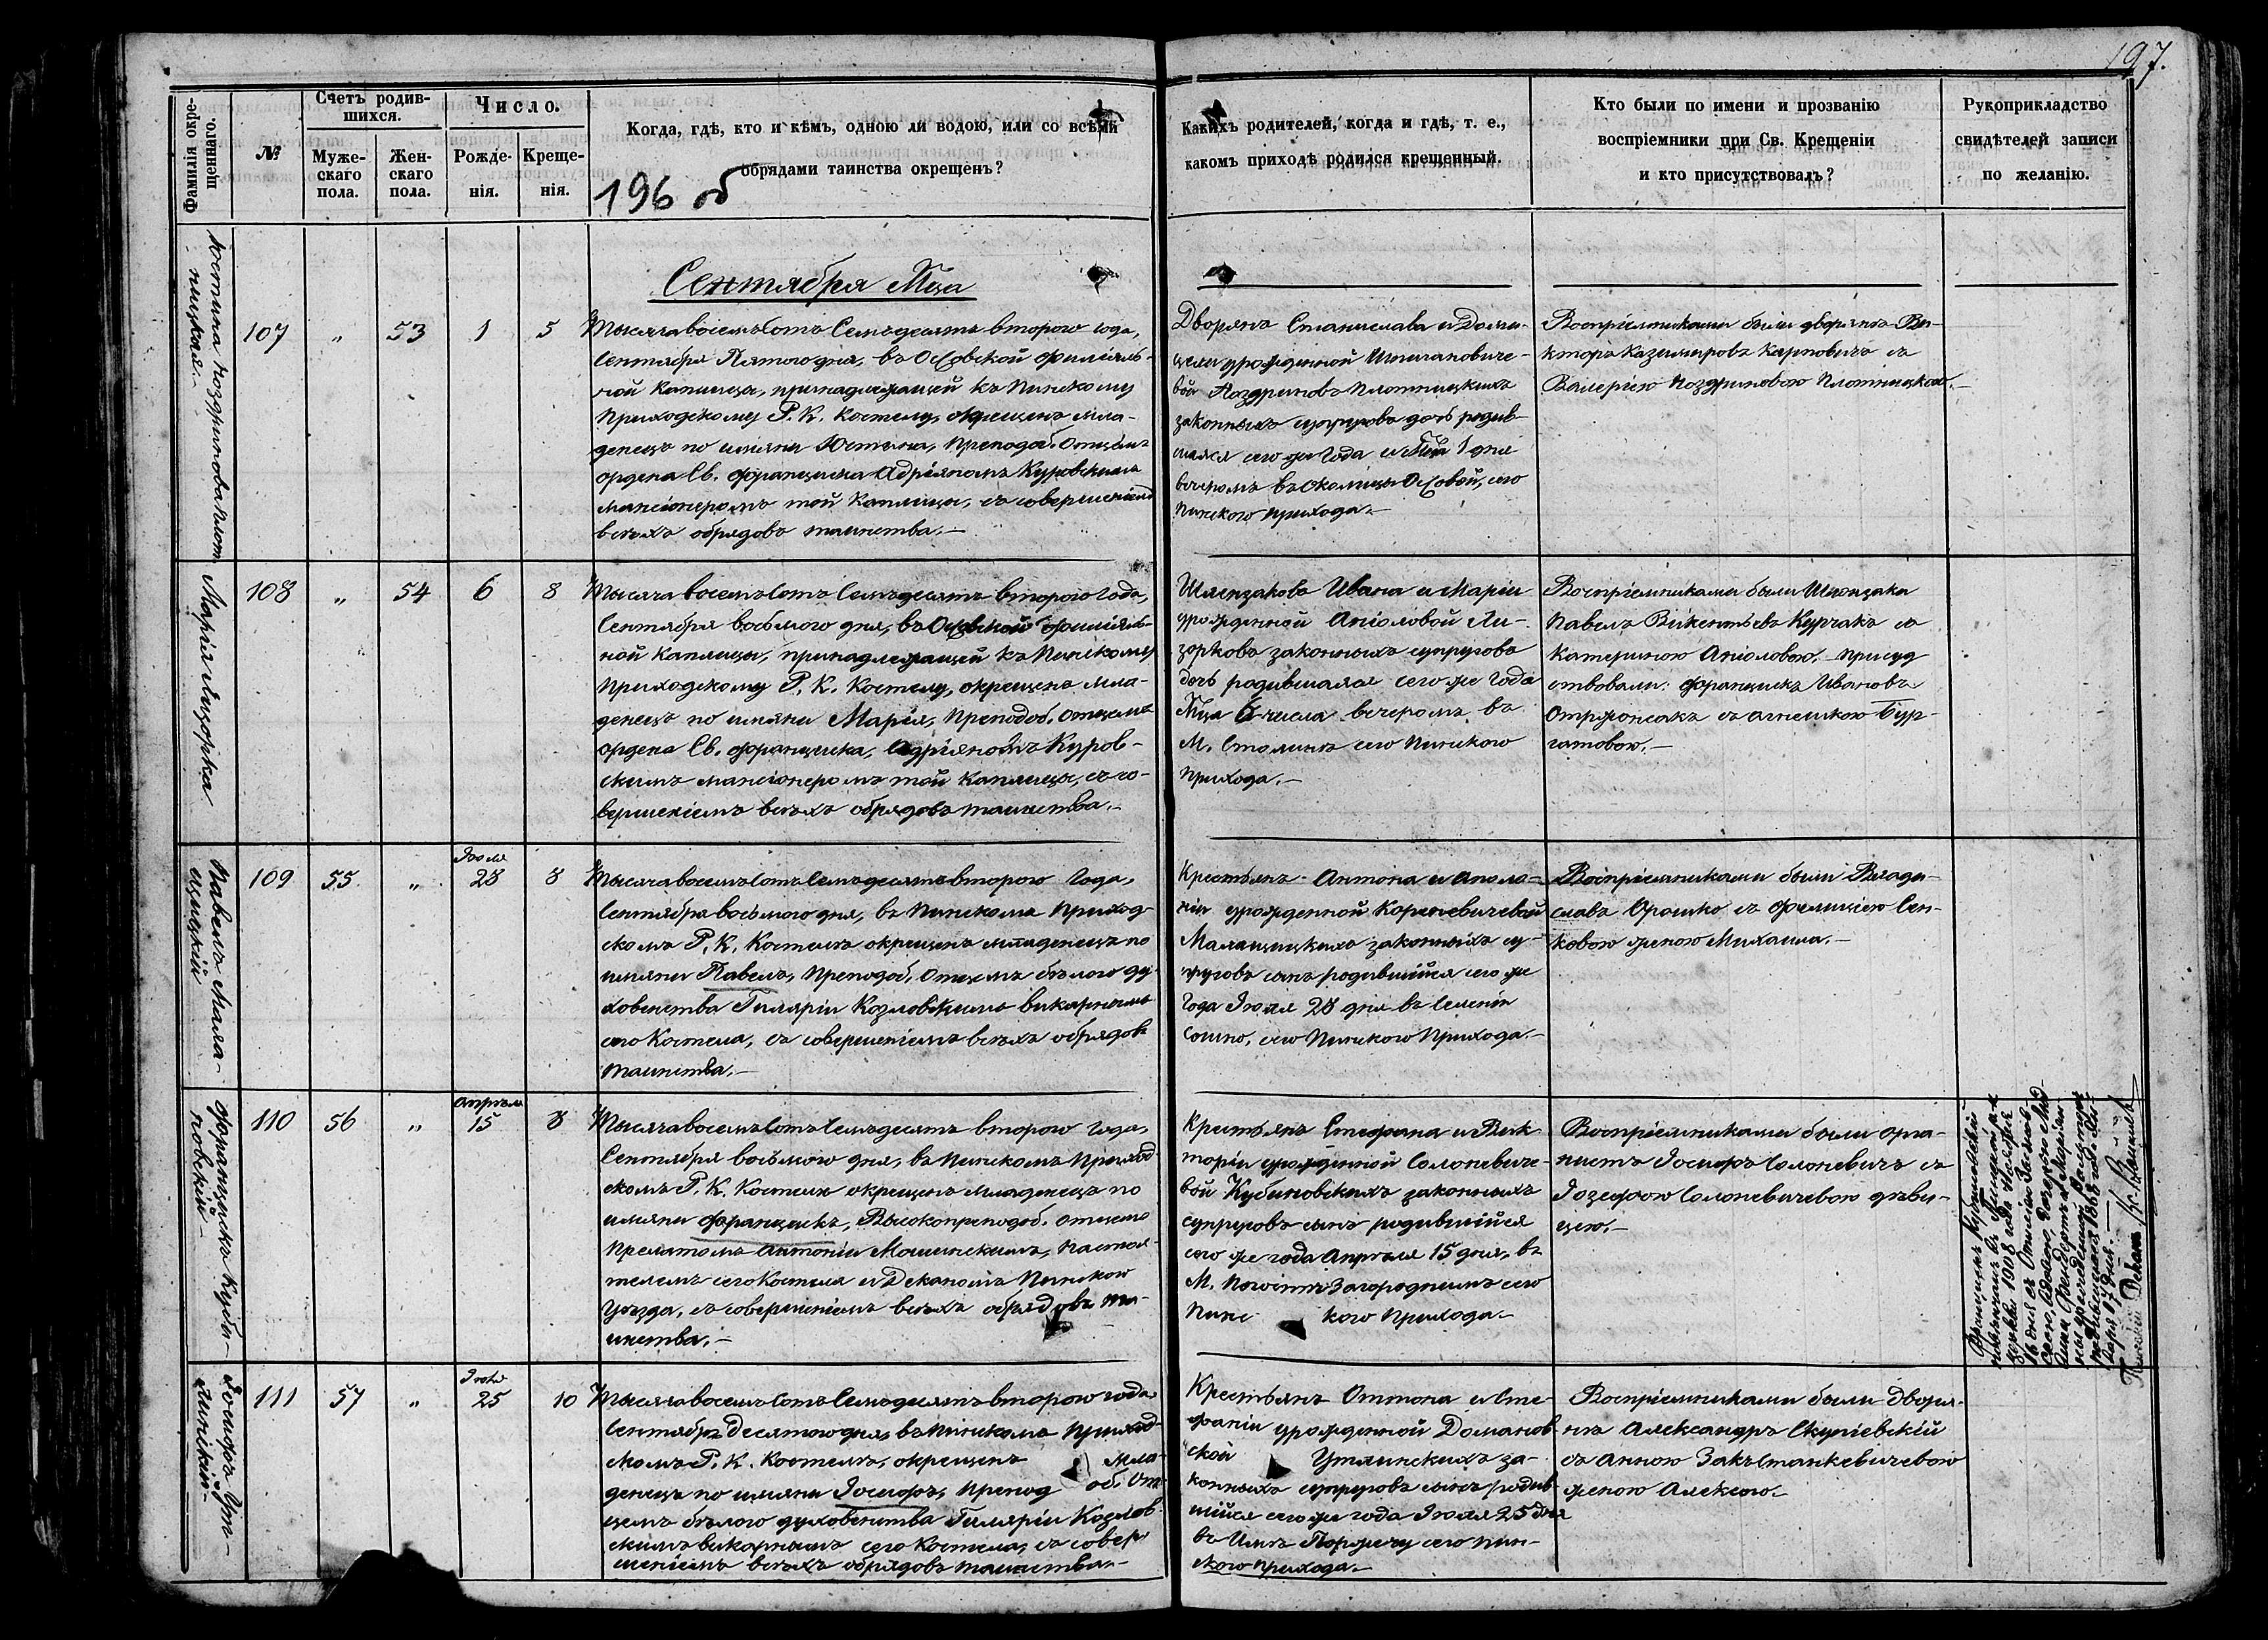 197.
Фамилія окре-
щеннаго.
№
Счетъ родив-
шихся.
Муже-
скаго
пола.
Жен-
скаго
пола.
Число.
Рожде-
нія.
Креще-
нія.
Когда, гдѣ, кто и кѣмъ, одною ли водою, или со всѣми
обрядами таинства окрещенъ?
196 об
Какихъ родителей, когда и гдѣ, т. е.,
какомъ приходѣ родился крещенный.
Кто были по имени и прозванію
воспріемники при Св. Крещеніи
и кто присутствовалъ?
Рукоприкладство
свидѣтелей записи
по желанію.
Сентября Мца
107
„
53
1
5
Тысяча восемъ сотъ Семьдесятъ второго года,
Сентября Пятого дня, въ Осовской филіаль-
ной каплицы, принадлежащей къ Пинскому
Приходскому Р. К. Костелу, окрещенъ мла-
денецъ по имяни Юстына, Преподоб. Отцемъ
ордена Св. Франциска Адріяномъ Куровскимъ
мансіонеромъ той каплицы, съ совершеніемъ
всѣхъ обрядовъ таинства.—
Дворянъ Станислава и Доми-
цели урожденной
законныхъ супруговъ дочь родив-
шаяся сего же года и Мца 1 дня
вечеромъ въ околицы Осовой, сего
Пинского прихода.—
Воспріемниками были дворянъ Ви-
кторъ Казимировъ Карповичъ съ
Валеріею Поздриновою Плотницкою.—
Марія Лизорка
108
„
54
6
8
Тысяча восемъ сотъ Семьдесятъ второго года,
Сентября восьмого дня, въ Осовской филіяль-
ной каплицы, принадлежащей къ Пинскому
Приходскому Р. К. Костелу, окрещенъ мла-
денецъ по имяни Марія, Преподоб. Отцемъ
ордена Св. Франциска, Адріяномъ Куров-
скимъ мансіонеромъ той каплицы, съ со-
вершеніемъ всѣхъ обрядовъ таинства.—
Ивана и Маріи
урожденной Аніоловой Ли-
зорковъ законныхъ супруговъ
дочь родившаяся сего же года
Мца 6 числа вечеромъ въ
М. Столинѣ сего Пинского
Прихода.—
Воспріемниками были
Павелъ Викентьевъ Курчакъ съ
Катериною Аніоловою, присуд
ствовали: Францискъ Ивановъ
съ Агнешкою Бур-
гатовою.—
Павелъ Мала-
щицкій
109
55
„
Іюля
28
8
Тысяча восемъ сотъ Семьдесятъ второго года,
Сентября восьмого дня, въ Пинскомъ Приход-
скомъ Р. К. Костелѣ окрещенъ младенецъ по
имяни Павелъ, Преподоб. Отцемъ бѣлого ду-
ховенства Гиляріи Козловскимъ викарнымъ
сего Костела, съ совершеніемъ всѣхъ обрядовъ
таинства.—
Крестьянъ Антона и Аполо-
ніи урожденной Кореневичевой
Малащицкихъ законныхъ су-
пруговъ сынъ родившійся сего же
года Іюля 28 дня въ Селеніи
Сошно, сего Пинского Прихода.—
Воспріемниками были Влади-
славъ Орошко съ Фелиціею Сен-
ковою женою Михаила.—
Францискъ Куби-
новскій
110
56
„
Апрѣля
15
8
Тысяча восемъ сотъ Семьдесятъ второго года,
Сентября восьмого дня, въ Пинскомъ Приход
скомъ Р. К. Костелѣ окрещенъ младенецъ по
имяни Францискъ, Высокопреподоб. Отцемъ
Прелатомъ Антоніи Мошинскимъ, Настоя-
телемъ сего Костела и Деканомъ Пинского
уѣзда, съ совершеніемъ всѣхъ обрядовъ та-
инства.—
Крестьянъ Стефана и Вик-
торіи урожденной Солоневиче-
вой Кубиновскихъ законныхъ
супруговъ сынъ родившійся
сего же года Апрѣля 15 дня, въ
М. Погостѣ Загородномъ сего
Пинс кого Прихода.—
Воспріемниками были орга-
нистъ Іосифъ Солоневичъ съ
Іозефою Солоневичевою дѣви-
цею.—
Іосифъ Ут-
линскій
111
57
„
Іюля
25
10
Тысяча восемъ сотъ Семьдесятъ второго года
Сентября Десятого дня, въ Пинскомъ Приход-
скомъ Р. К. Костелѣ, окрещенъ мла-
денецъ по имяни Іосифъ, Препод об. От-
цемъ бѣлого духовенства Гиляріи Козлов-
скимъ викарнымъ сего Костела, съ совер-
шеніемъ всѣхъ обрядовъ таинства.—
Крестьянъ Оттона и Сте-
фаніи урожденной Доманов-
ской Утлинскихъ за-
конныхъ супруговъ сынъ родив-
шійся сего же года Іюля 25 дня
въ Им. Порѣчу сего Пин-
ского прихода.—
Воспріемниками были Дворя-
нъ Александръ Скупіевскій
съ Анною Закъ Станкевичевою
женою Алексого.—